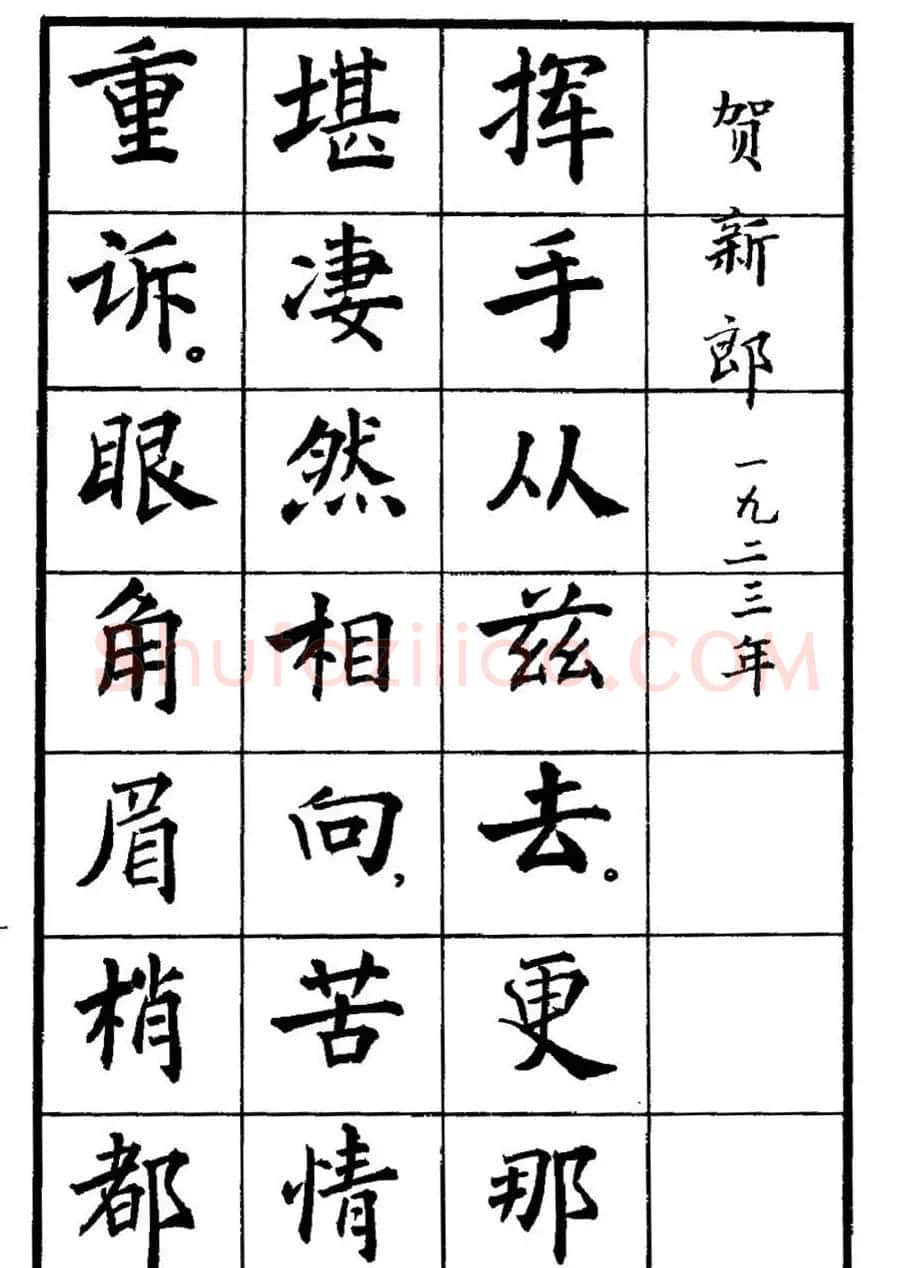 贺新郎 一九二三年
挥手从兹去。更那
堪凄然相向，苦情
重诉。眼角眉梢都
Shufaziliao.COM